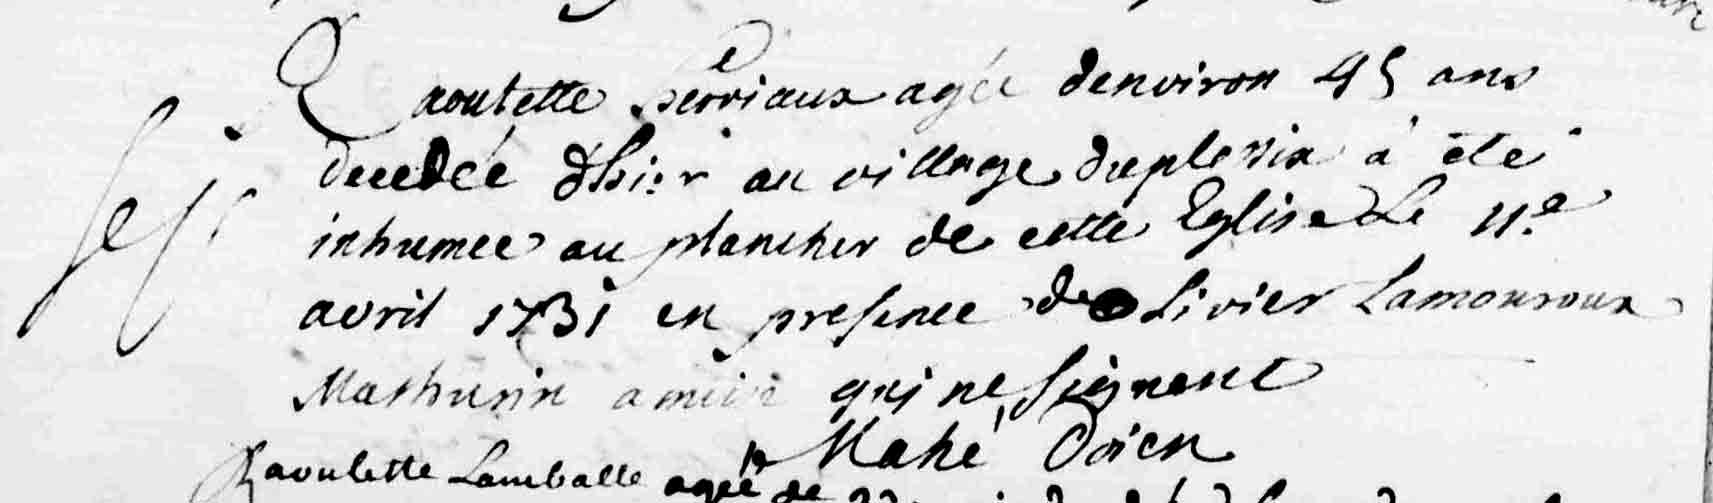 Raoulette perriaux agée denviron 45 ans
decedée d'hier au village duplessix à été
inhumee au plancher de cette Eglise Le 11.e
avril 1731 en presence de olivier Lamouroux
Mathurin qui ne signent
Mahé Doien
Raoulette Lamballe agée de